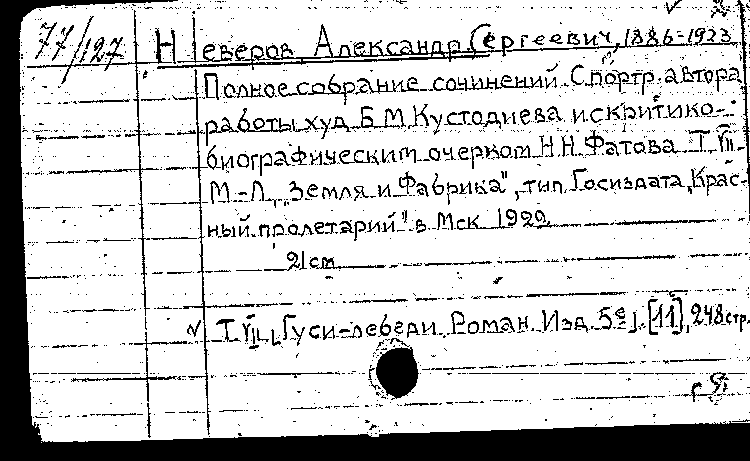 77/127 Неверов, Александр Сергеевич, 1886-1923
Полное собрание сочинений. С портр. автора
работы худ. Б.М. Кустодиева и с критико-
биографическим очерком Н.Н. Фатова. Т. VII.
М.-Л., "Земля и Фабрика", тип. Госиздата "Крас-
ный пролетарий" в Мск. 1929.
21см.
Т. VII. Гуси-лебеди. Роман. Изд. 5е]. [11], 248 стр.